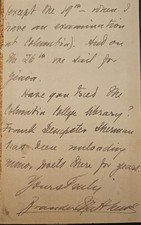 (except the 19th - when I
have an examination
at Columbia). And on
the 26th we sail for
Genoa.
Have you tried the
Columbia College Library?
Frank Dempster Sherman
has been unloading
minor poets there for years.
Yours Truly
Brander Matthews